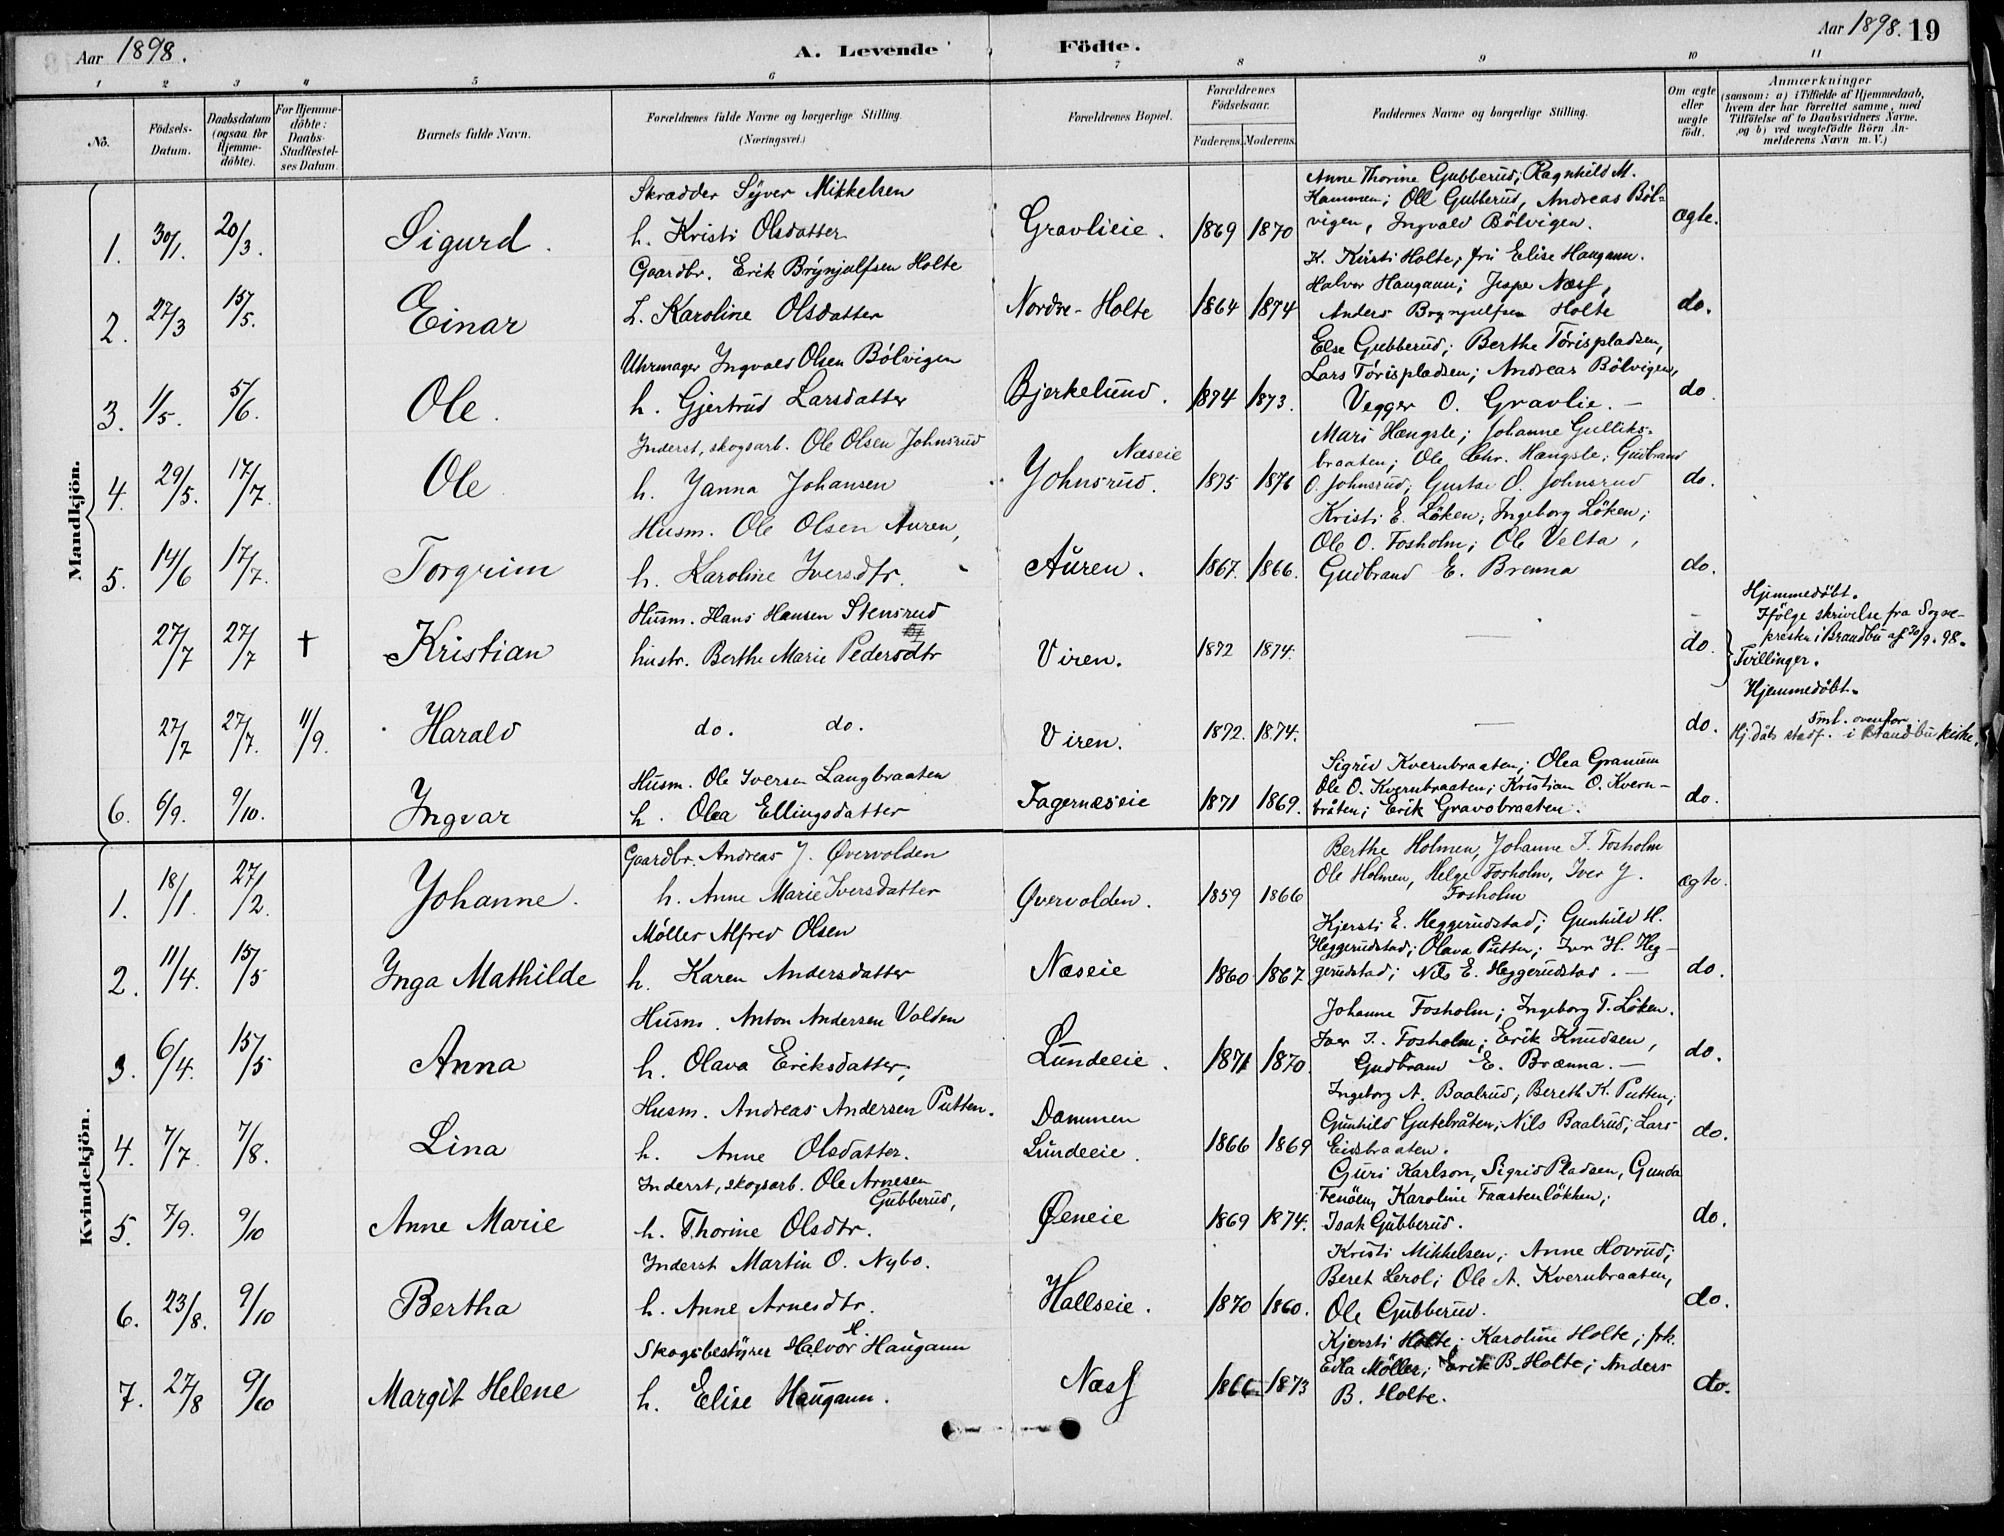 Aar 1898.
A. Levende Födte.
Aar 1898. 19
1 2 3 4 5 6 7 8 9 10 11
No.
Födsels-Datum.
Daabsdatum (ogsaa for Hjemme-döbte).
For Hjemme-döbte: Daabs-Stadfæstel-ses Datum.
Barnets fulde Navn.
Forældrenes fulde Navne og borgerlige Stilling. (Næringsvei.)
Forældrenes Bopæl.
Forældrenes Födselsaar.
Faderens. Moderens.
Faddernes Navne og borgerlige Stilling.
Om ægte eller uægte födt.
Anmærkninger
(saasom: a) i Tilfælde af Hjemmedaab,
hvem der har forrettet samme, med
Tilföielse af to Daabsvidners Navne,
og b) ved uægtefödte Börn An-
melderens Navn m. V.)
Mandkjön.
1. 30/1. 20/3. Sigurd.
Skrædder Syver Mikkelsen
h. Kristi Olsdatter
Gravlieie. 1869 1870
Anne Thorine Gubberud; Ragnhild M.
Kammen; Oll Gubberud, Andreas Böl-
vigen, Ingvald Bölvigen.
ægte.
2. 27/3 15/5. Einar
Gaardbr. Erik Brynjulfsen Holte
h. Karoline Olsdatter
Nordre-Holte 1864 1874
K. Kirsti Holte; fru Elise Haugann.
Halvor Haugann; Jespe Næss,
Anders Brynjulfsen Holte
do.
3. 1/5. 5/6. Ole.
Uhrmager Ingvald Olsen Bölvigen
h. Gjertrud Larsdatter
Bjerkelund. 1874 1873.
Else Gubberud; Berthe Törispladsen,
Lars Törispladsen; Andreas Bölvigen,
Vegger O. Gravlie. —
do.
4. 29/5. 17/7. Ole
Inderst, skogsarb. Ole Olsen Johnsrud
h. Janna Johansen
Næseie
Johnsrud. 1875 1876
Mari Hængsle; Johanne Gulliks-
braaten; Ole Chr. Hangsle; Gudbrand
O. Johnsrud; Gustav O. Johnsrud
do.
5. 14/6 17/7. Torgrim
Husm. Ole Olsen Auren,
h. Karoline Iversdtr.
Auren. 1867. 1866.
Kristi E. Löken; Ingeborg Löken;
Ole O. Fosholm; Ole Velta,
Gudbrand E. Brenna
do.
27/7 27/7 † Kristian
Husm. Hans Hansen Stensrud
hustr. Berthe Marie Pedersdtr
Viren. 1872 1874.
—
do.
Hjemmedöbt.
Ifölge skrivelse fra Sogne-
presten i Brandbu af 30/9. 98.
Tvillinger.
27/7 27/7. 11/9. Harald
do. do.
Viren. 1872. 1874.
—
do.
Hjemmedöbt.
Sml. ovenfor.
Hj.dåb stadf. i Brandbu kirke.
6. 6/9. 9/10. Ingvar
Husm. Ole Iversen Langbraaten
h. Olea Ellingsdatter
Fagernæseie 1871 1869.
Sigrid Kvernbraaten; Olea Granum
Ole O. Kvernbraaten; Kristian O. Kvern-
bråten; Erik Gravobraaten.
do.
Kvindekjön.
1. 18/1. 27/2. Johanne.
Gaardbr. Andreas J. Øvervolden
h. Anne Marie Iversdatter
Øvervolden. 1859 1866
Berthe Holmen, Johanne I. Fosholm
Ole Holmen, Helge Fosholm, Iver J.
Fosholm
ægte.
2. 11/4. 15/5 Inga Mathilde
Møller Alfred Olsen
h. Karen Andersdatter
Næseie 1860 1867.
Kjersti E. Heggerudstad; Gunhild H.
Heggerudstad; Olava Putten; Iver H. Heg-
gerudstad; Nils E. Heggerudstad. —
do.
3. 6/4. 15/5 Anna
Husm. Anton Andersen Volden
h. Olava Eriksdatter,
Lundeeie. 1871 1870
Johanne Fosholm; Ingeborg T. Löken.
Iver I. Fosholm; Erik Knudsen,
Gudbrand E. Brænna. —
do.
4. 7/7. 7/8. Lina
Husm. Andreas Andersen Putten.
h. Anne Olsdatter.
Dammen
Lundeeie. 1866 1869
Ingeborg A. Baalrud; Bereth K. Putten;
Gunhild Gutebråten; Nils Baalrud; Lars
Eidsbraaten.
do.
5. 7/9. 9/10 Anne Marie
Inderst, skogsarb. Ole Arnesen
Gubberud,
h. Thorine Olsdtr.
Øeneie 1869 1874.
Guri Karlson, Sigrid Pladsen, Gunda
Karoline Faastenlökken;
Isak Gubberud.
do.
6. 23/8. 9/10 Bertha
Inderst Martin O. Nybo.
h. Anne Arnesdtr.
Hallseie. 1870 1860.
Kristi Mikkelsen; Anne Hovrud;
Beret Lerol; Ole A. Kvernbraaten,
Ole Gubberud.
do.
7. 27/8 9/10 Margit Helene
Skogsbestyrer Halvor H. Haugann
h. Elise Haugann.
Næss 1866 1873
Kjersti Holte; Karoline Holte; frk.
Edla Möller; Erik B. Holte; Anders
B. Holte.
do.